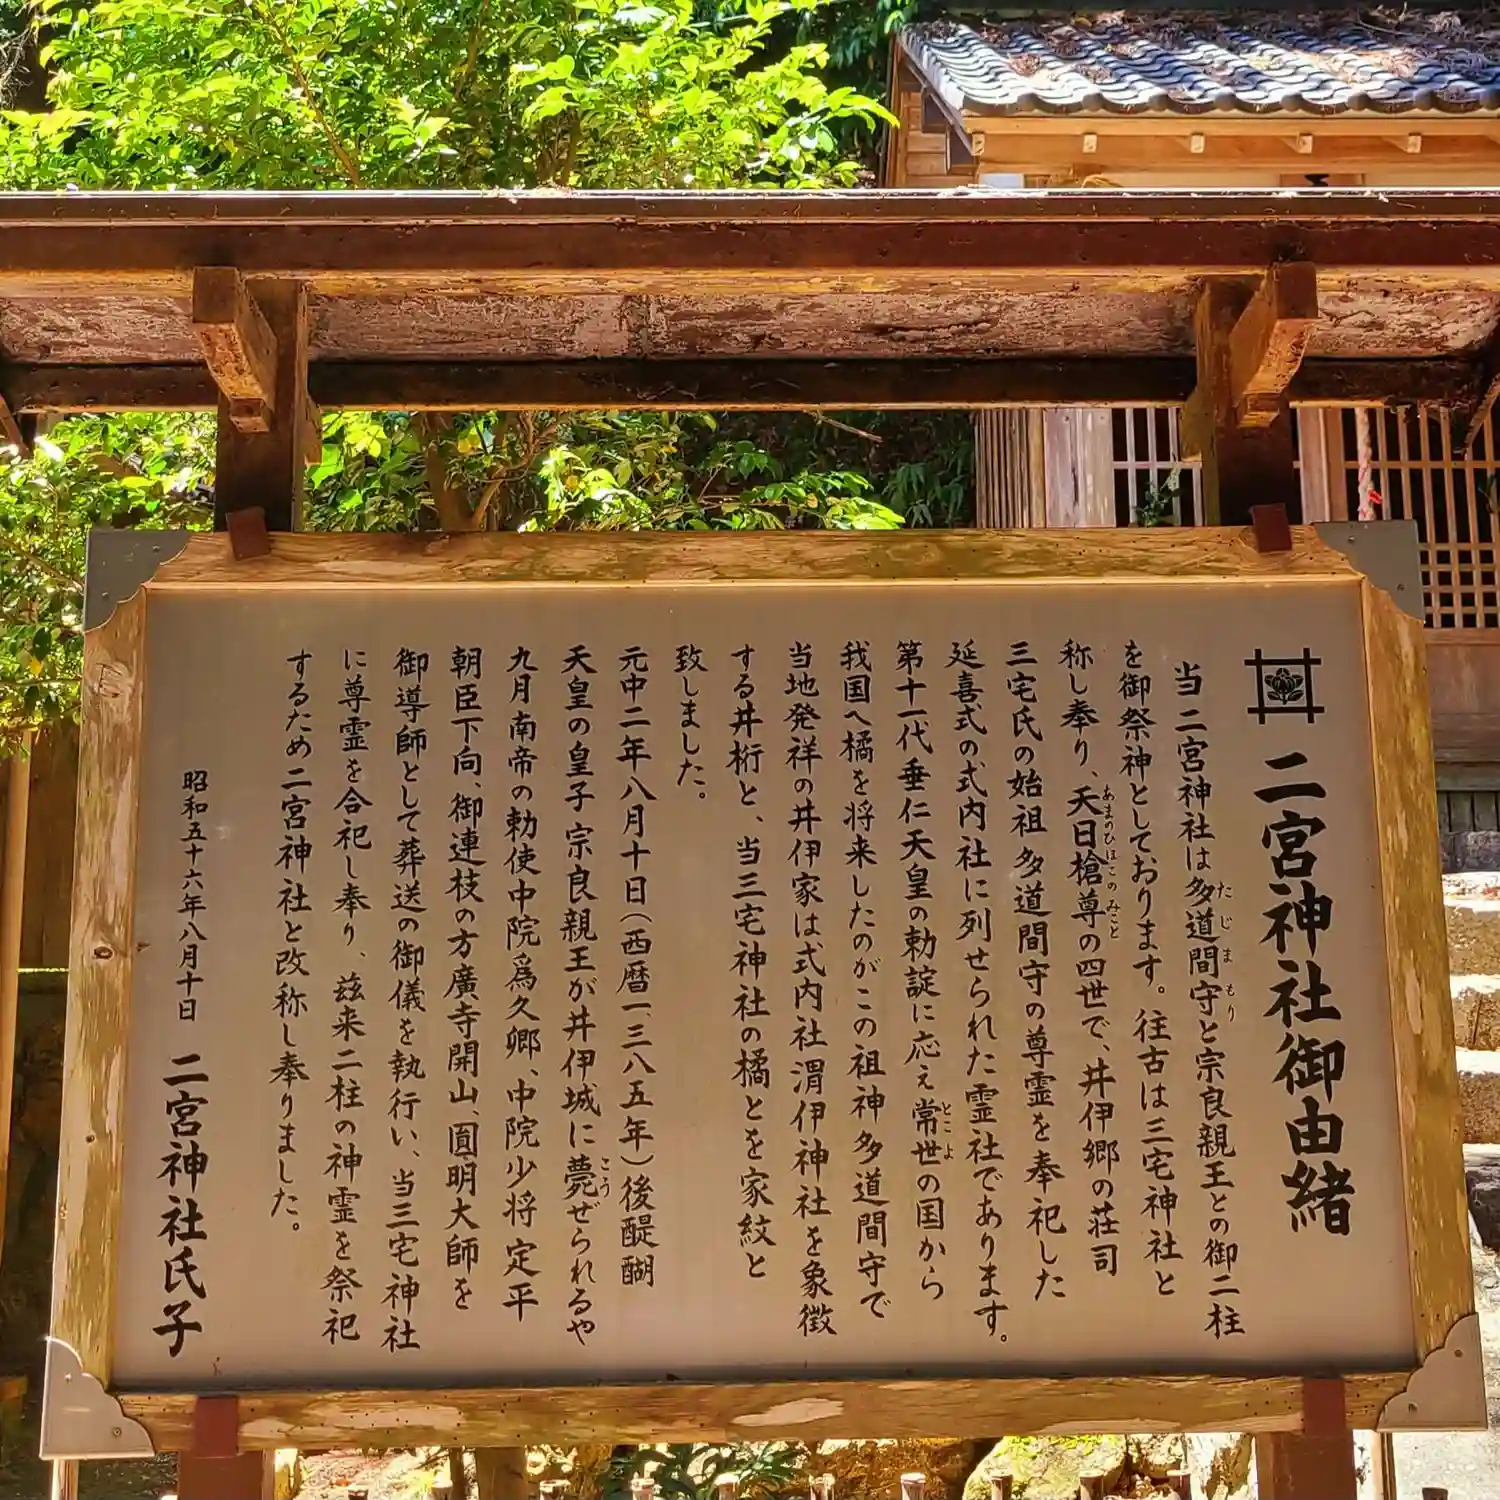 二宮神社御由緒
当二宮神社は多道間守と宗良親王との御二柱
たじまもり
を御祭神としております。往古は三宅神社と
称し奉り、天日槍尊の四世で、井伊郷の荘司
あまのひほこのみこと
三宅氏の始祖多道間守の尊霊を奉祀した
延喜式の式内社に列せられた霊社であります。
第十一代垂仁天皇の勅諚に応え常世の国から
とこよ
我国へ橘を将来したのがこの祖神多道間守で
当地発祥の井伊家は式内社渭伊神社を象徴
する井桁と、当三宅神社の橘とを家紋と
致しました。
元中二年八月十日(西暦一、三八五年)後醍醐
天皇の皇子宗良親王が井伊城に薨ぜられるや
こう
九月南帝の勅使中院爲久卿、中院少将定平
朝臣下向、御連枝の方廣寺開山、圓明大師を
御導師として葬送の御儀を執行い、当三宅神社
に尊霊を合祀し奉り、玆来二柱の神霊を祭祀
するため二宮神社と改称し奉りました。
昭和五十六年八月十日 二宮神社氏子